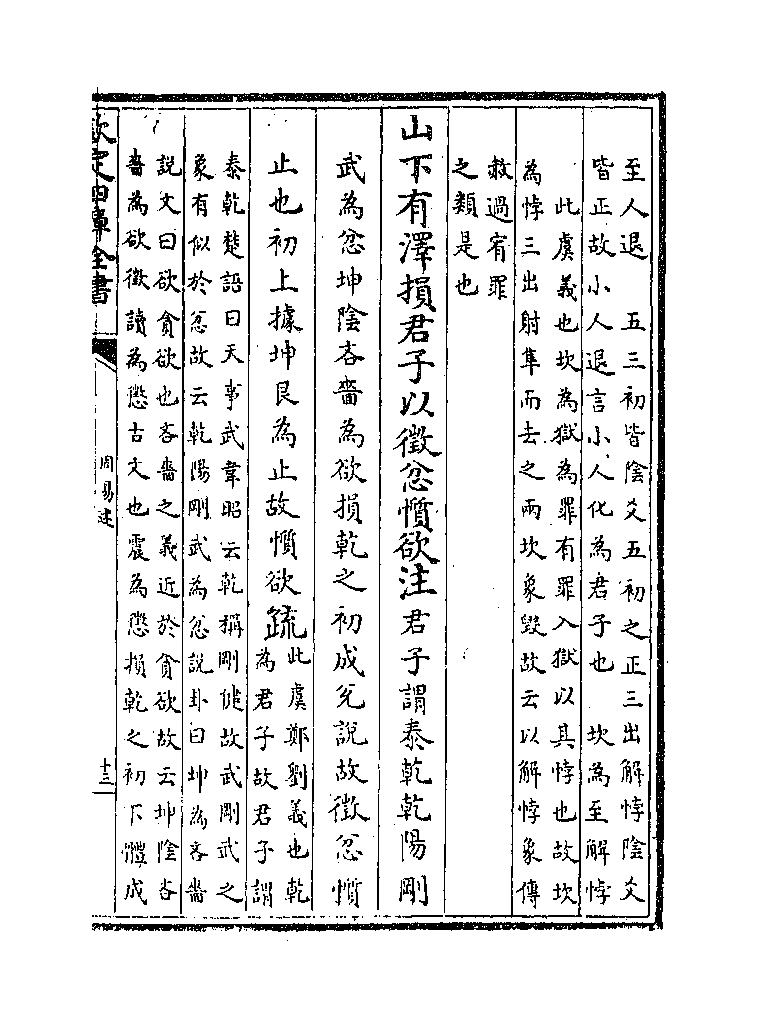 至人退　五三初皆陰爻五初之正三出解悖陰爻
皆正故小人退言小人化為君子也　坎為至解悖
此虞義也坎為獄為罪有罪入獄以其悖也故坎
為悖三出射隼而去之兩坎象毀故云以解悖象傳
赦過宥罪
之類是也
山下有澤損君子以徵忿懫欲注君子謂泰乾乾陽剛
武為忿坤陰吝嗇為欲損乾之初成兌說故徵忿懫
止也初上據坤艮為止故懫欲疏此虞鄭劉義也乾
為君子故君子謂
泰乾楚語曰天事武韋昭云乾稱剛健故武剛武之
象有似於忿故云乾陽剛武為忿說卦曰坤為吝嗇
說文曰欲貪欲也吝嗇之義近於貪欲故云坤陰吝
嗇為欲徵讀為懲古文也震為懲損乾之初下體成
欽定四庫全書
周易述
十三